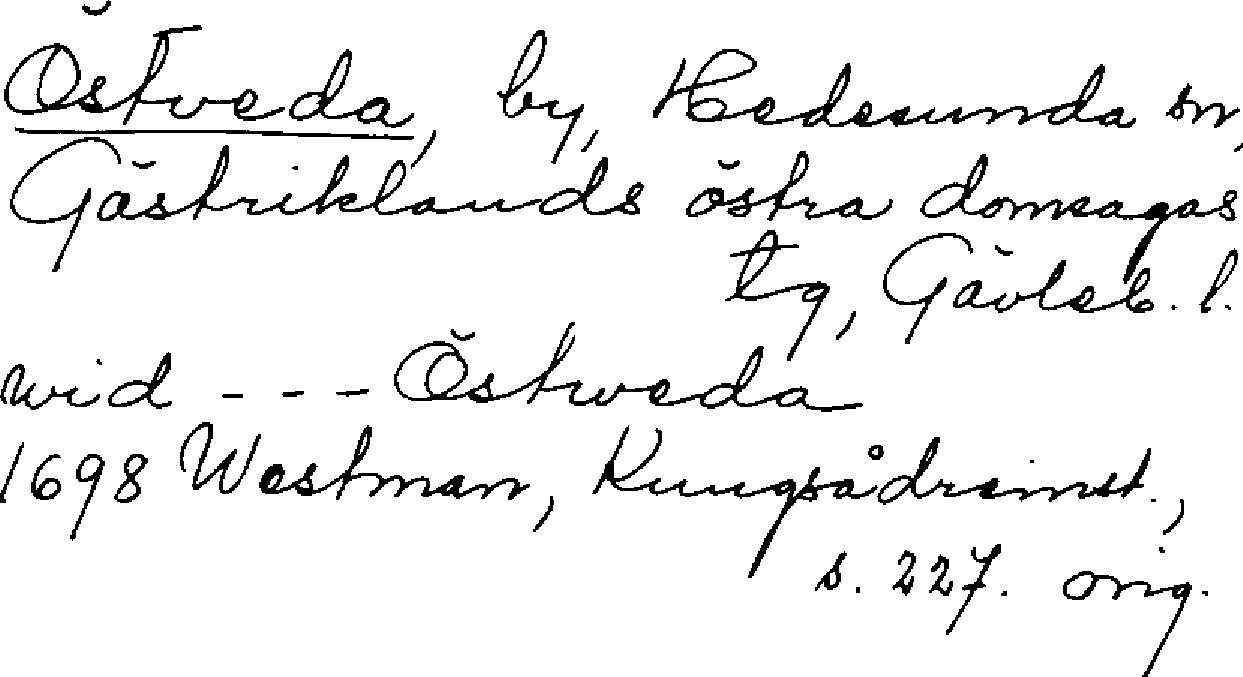 Östveda, by, Hedesunda sn,
Gästriklands östra domsagas
tg, Gävleb. l.
wid - - - Östweda
1698 Westman, Kungsådreinst.,
s. 227. orig.